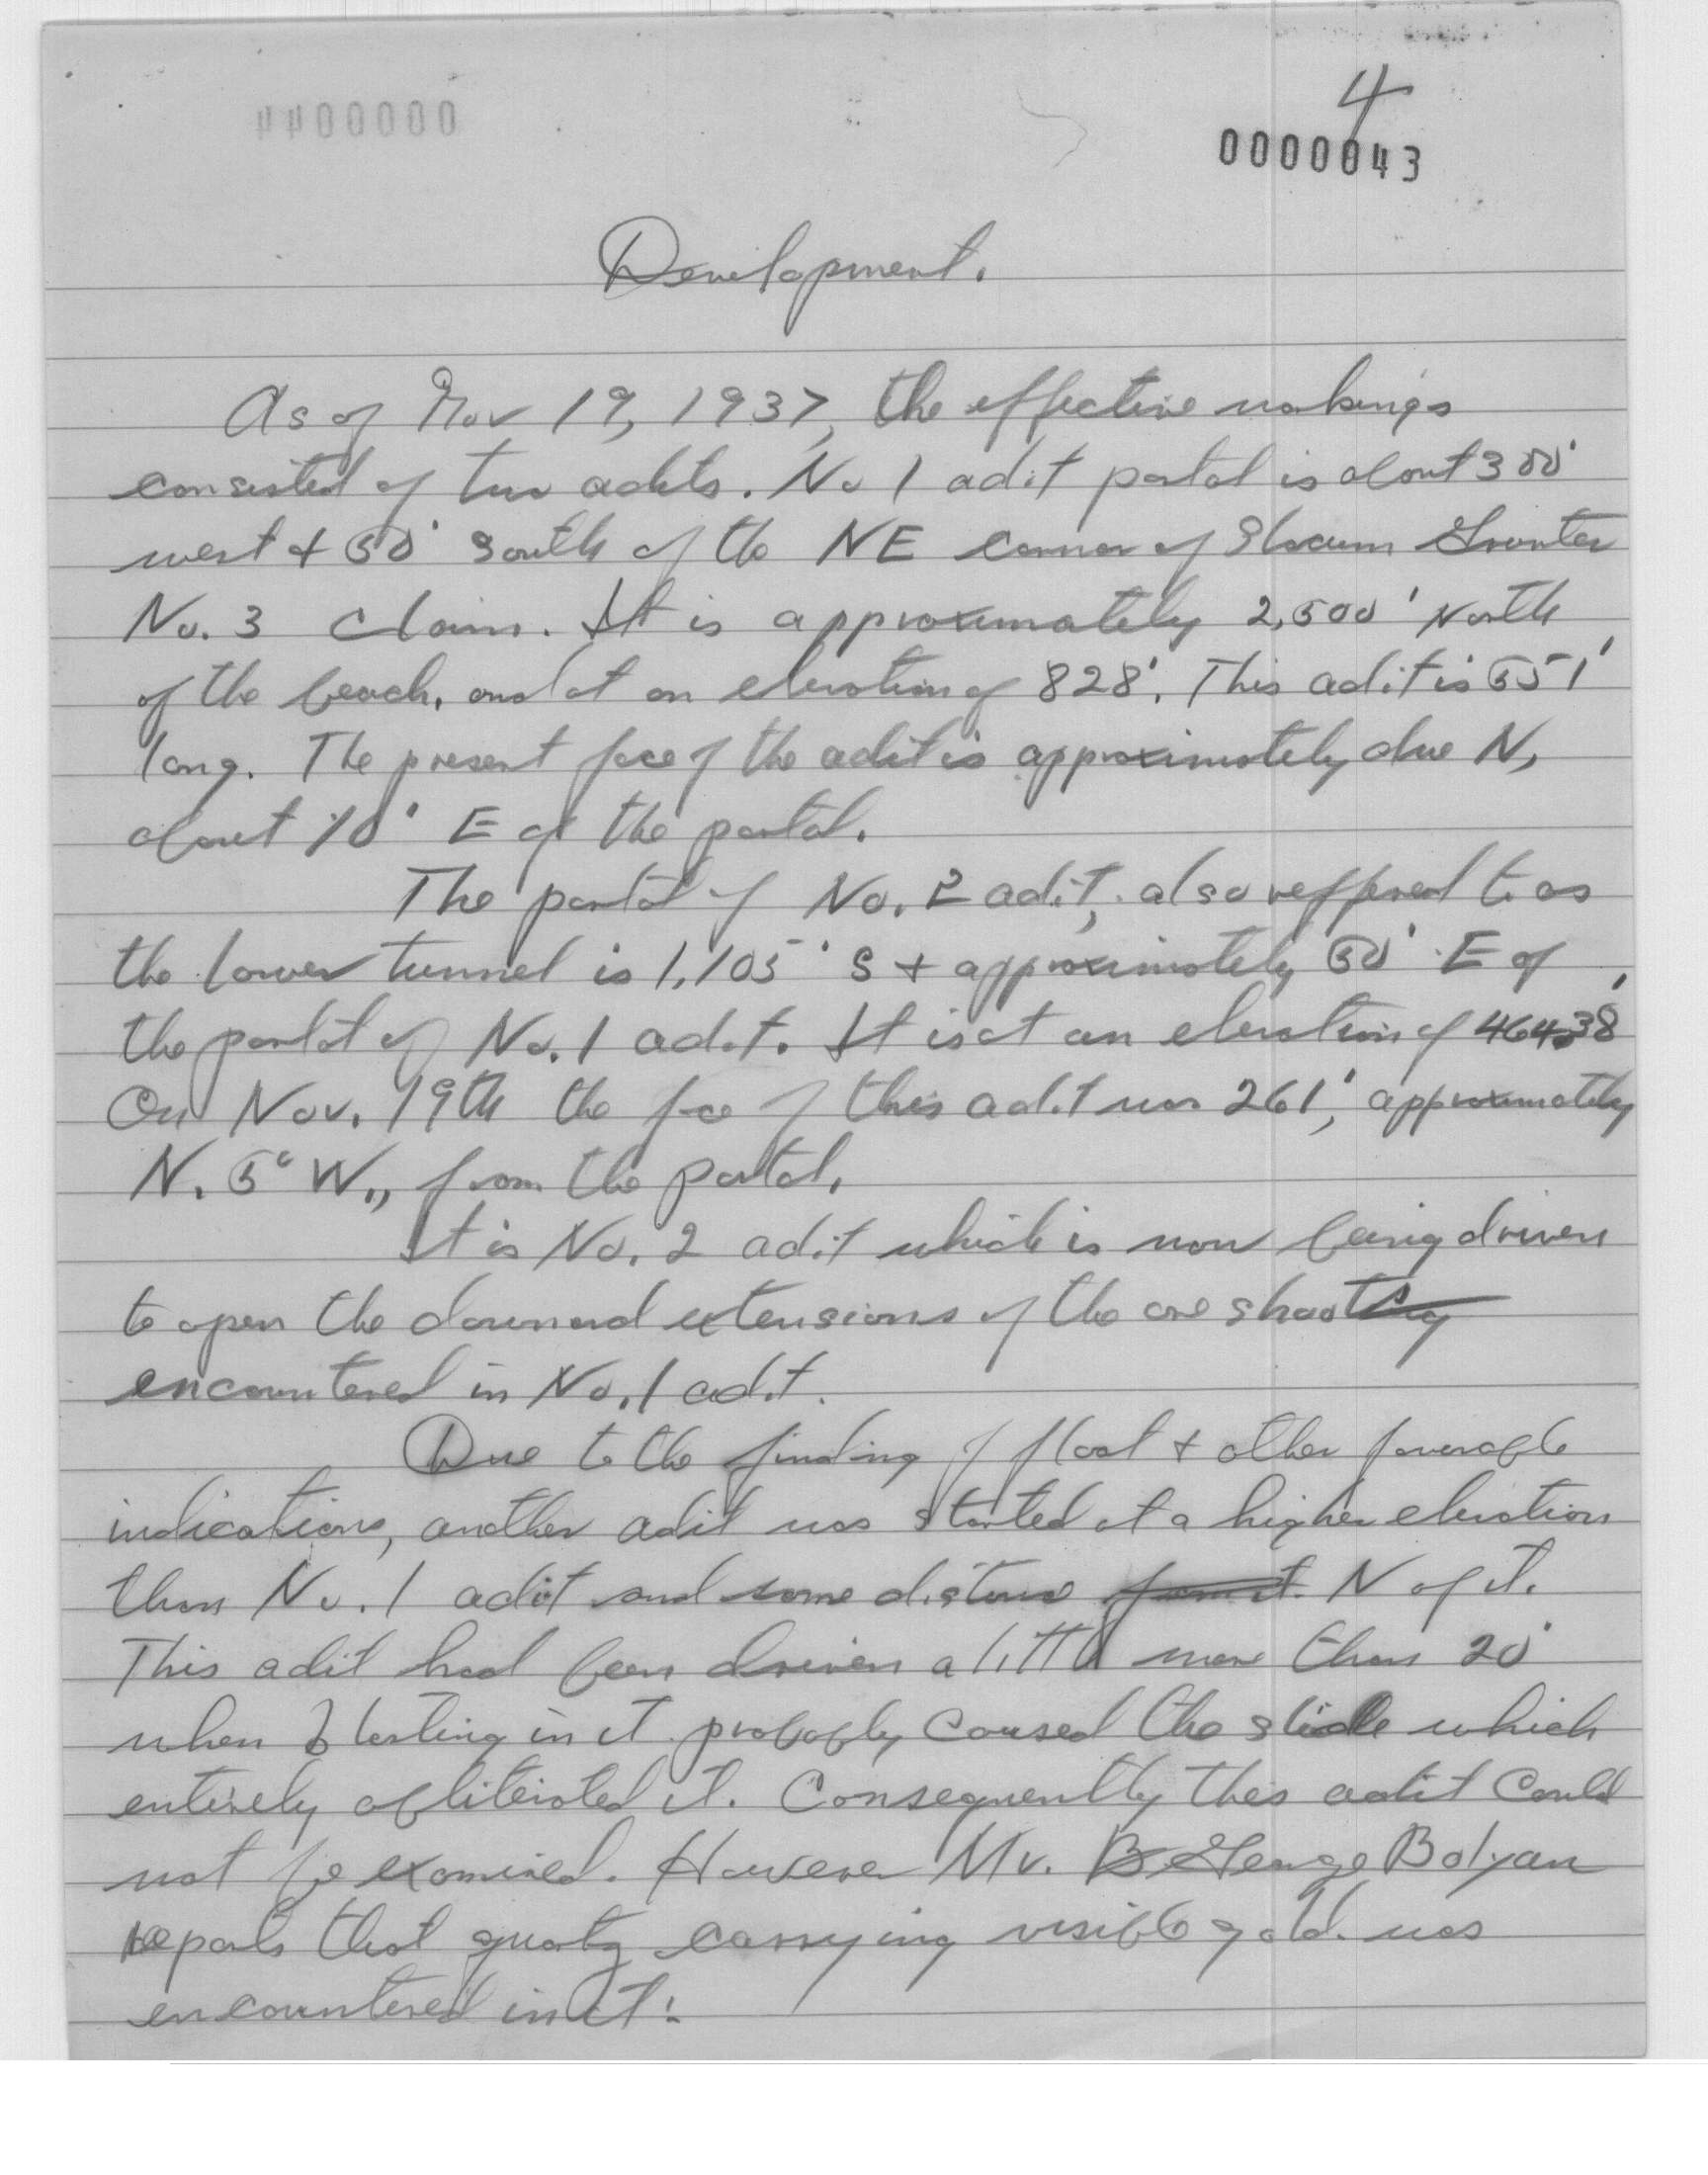 4
0000043
Development.
As of Nov 19, 1937, the effective workings
consisted of two adits. No 1 adit portal is about 300'
west + 50' South of the NE corner of
No. 3 Claim. It is approximately 2,500' North
of the beach, and at an elevation of 828'. This adit is 551'
long. The present face of the adit is approximately due N,
about 10' E of the portal.
The portal of No. 2 adit, also reffered to as
the lower tunnel is 1,105' S + approximately 50' E of
the portal of No. 1 adit. It is at an elevation of
On Nov. 19th the face of this adit was 261', approximately
N. 5° W., from the portal.
It is No. 2 adit which is now being driven
to open the downward extensions of the ore shoots
encountered in No. 1 adit.
Due to the finding of float + other favorable
indications, another adit was started at a higher elevation
than No. 1 adit and some distance from it N of it.
This adit had been driven a little more than 20'
when blasting in it probably caused the slide which
entirely obliterated it. Consequently this adit could
not be examined. However Mr. B George Bolyan
reports that quartz carrying visible gold was
encountered in it.